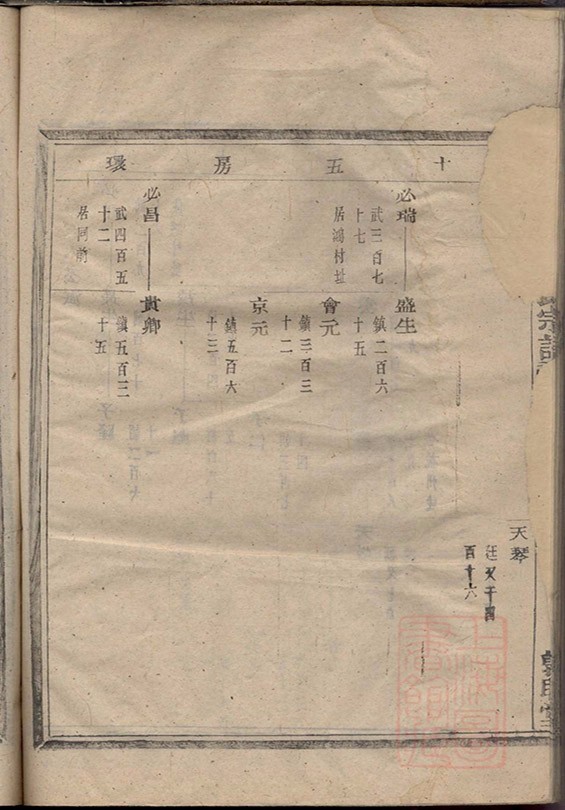 十五房環
必瑞
武三百七
十七
居鴻村址
盛生
鎮二百六
十五
會元
鎮三百三
十二
京元
鎮五百六
十三
必昌
武四百五
十二
居同前
貴卿
鎮五百三
十五
天琴
廷文千四
百十六
宗譜